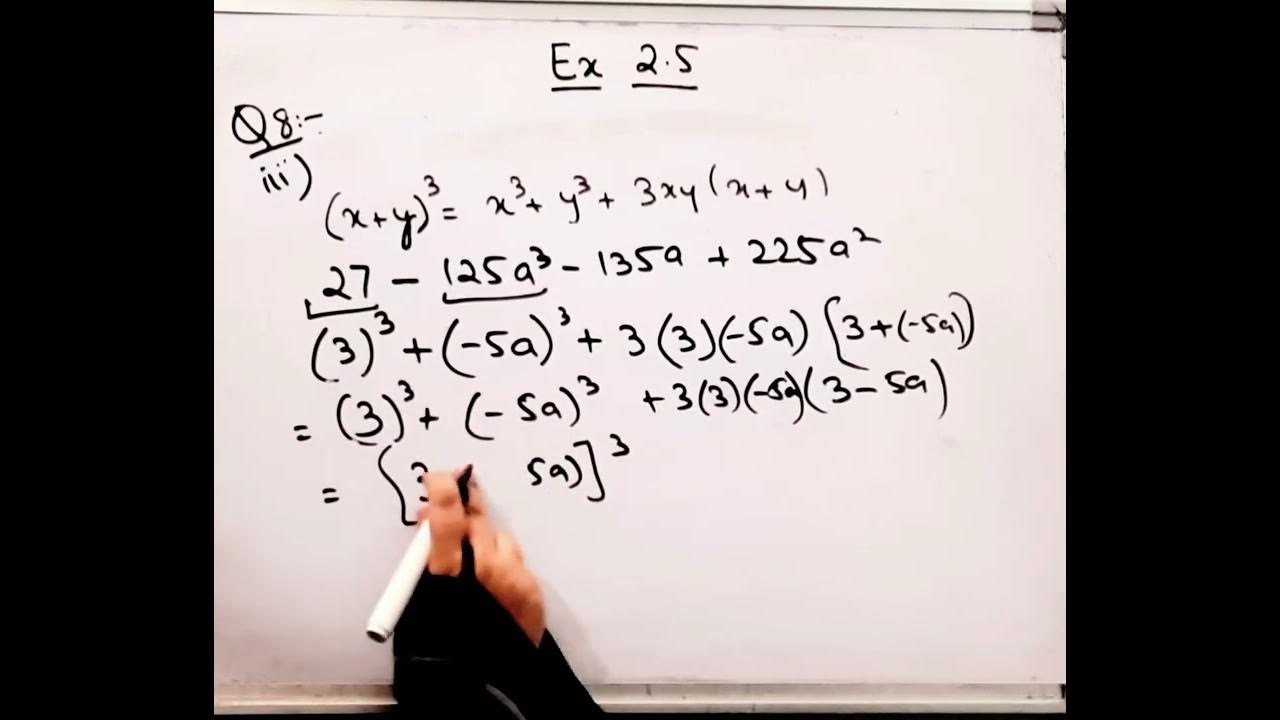 Ex 2.5
Q8:-
iii)
(x+y)³ = x³ + y³ + 3xy(x+y)
27 - 125a³ - 135a + 225a²
(3)³ + (-5a)³ + 3(3)(-5a) [3+(-5a)]
= (3)³ + (-5a)³ + 3(3)(-5a)(3-5a)
= [3 5a)]³